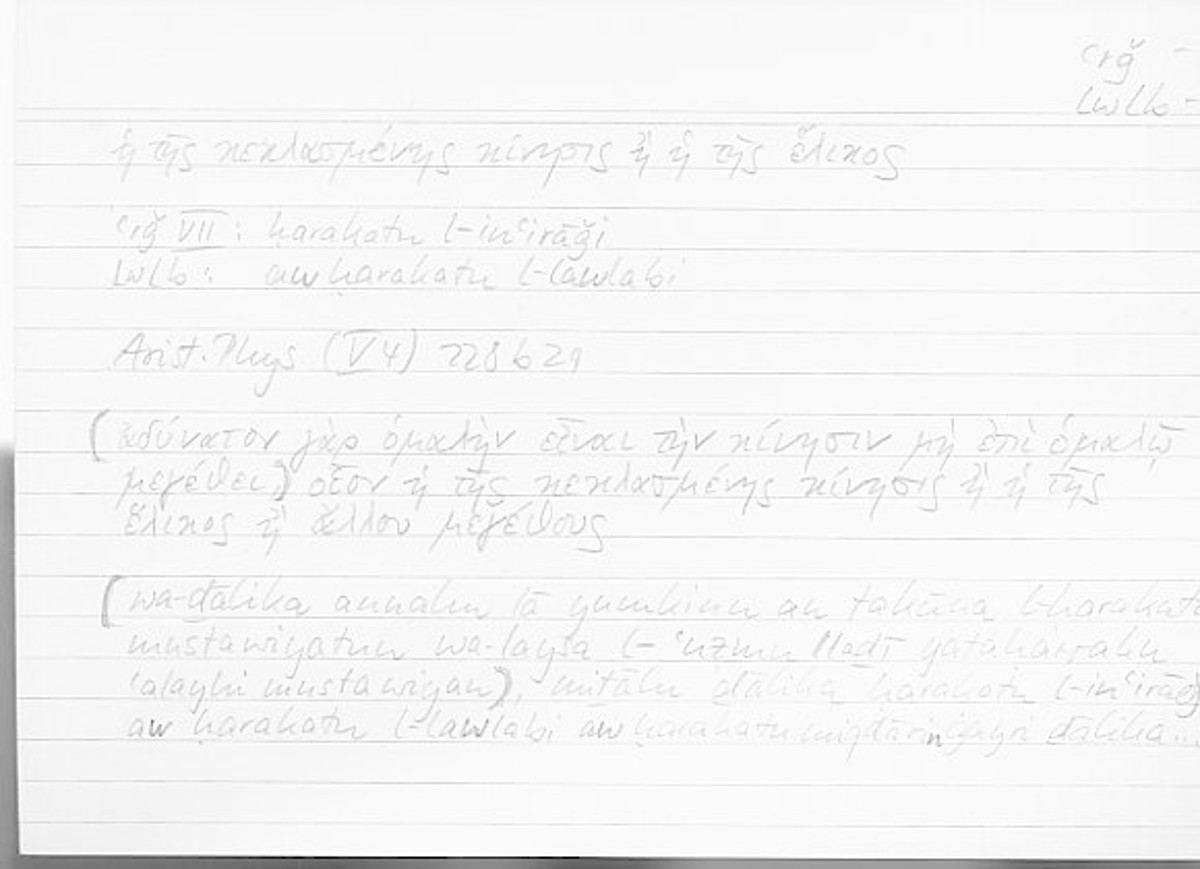 ʿrǧ -
lwlb -
ἡ τῆς κεκλασμένης κίνησις ἢ ἡ τῆς ἕλικος
ʿrǧ VII: ḥarakatu l-inʿirāǧi
lwlb: aw ḥarakatu l-lawlabi
Arist. Phys (V 4) 228 b 29
(ἀδύνατον γὰρ ὁμαλὴν εἶναι τὴν κίνησιν μὴ ἐπὶ ὁμαλῷ
μεγέθει) οἷον ἡ τῆς κεκλασμένης κίνησις ἢ ἡ τῆς
ἕλικος ἢ ἄλλου μεγέθους
(wa-ḏālika annahu lā yumkinu an takūna l-ḥarakatu
mustawiyatun wa-laysa l-ʿuẓmu llaḏī yataḥarraku
ʿalayhi mustawiyan), miṯālu ḏālika ḥarakatu l-inʿirāǧ
aw ḥarakatu l-lawlabi aw ḥarakatu miqdārin ġayri ḏālika...